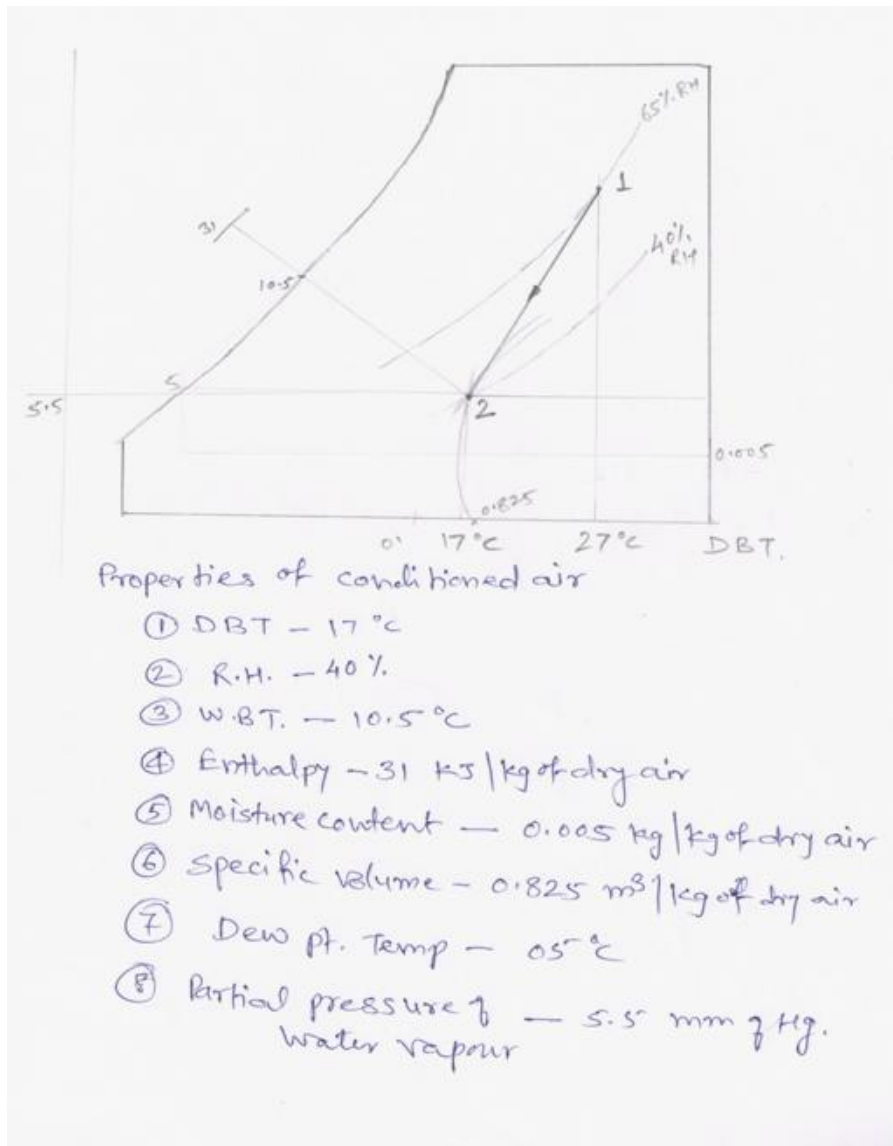 65% RH
1
40%
RH
31
10.5
5
5.5
2
0.005
0.825
0.
17°C
27°C
DBT.
Properties of conditioned air
① DBT - 17 °C
② R.H. - 40 %
③ W.BT. - 10.5°C
④ Enthalpy - 31 KJ/kg of dry air
⑤ Moisture content - 0.005 kg/kg of dry air
⑥ Specific volume - 0.825 m³/kg of dry air
⑦ Dew pt. Temp - 05°C
⑧ Partial pressure of - 5.5 mm of Hg.
water vapour